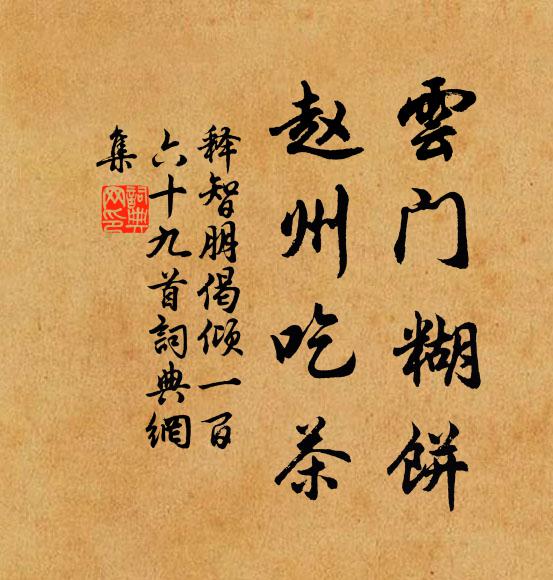 雲门糊餅
赵州吃茶
释智朋偈倾一百
六十九首詞典網
集
詞典網印